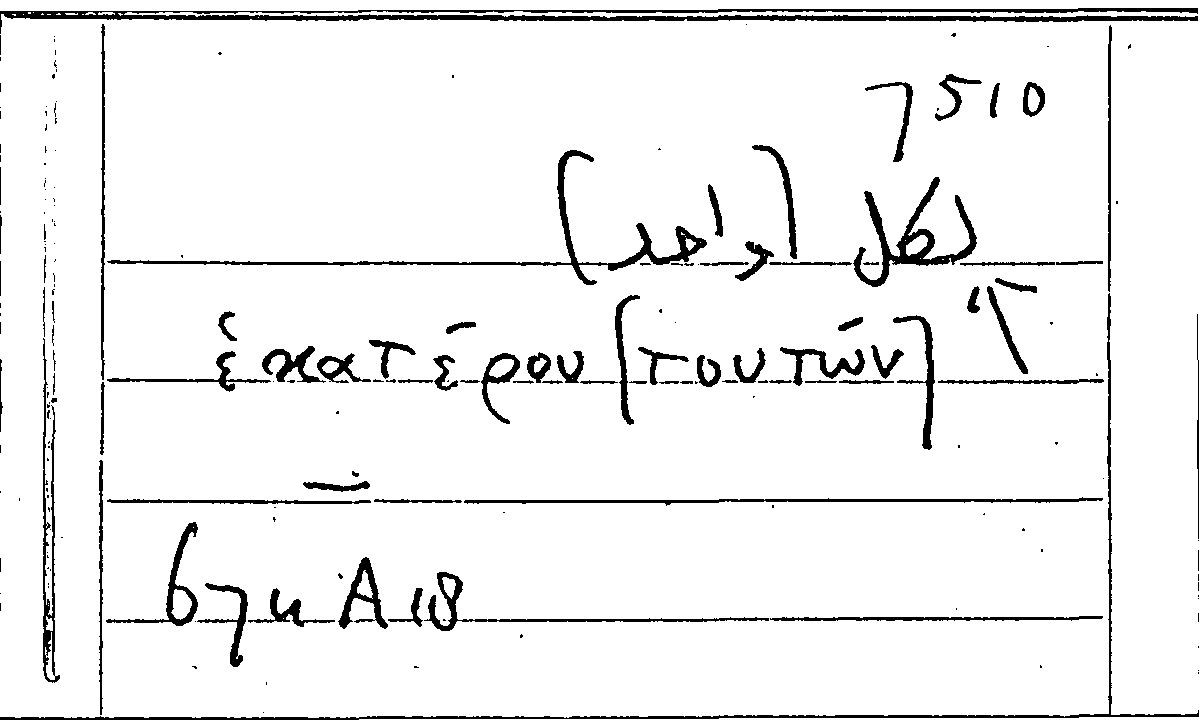 7510
لكل (واحد)
ἑκατέρου [τουτῶν]
67a A 18